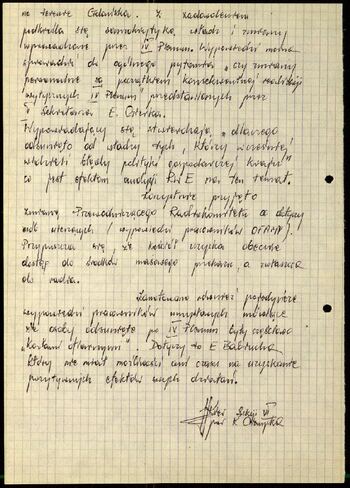 na terenie Gdańska. Z zadowoleniem
podkreśla się demokratyzację władz i zmiany
wprowadzone przez IV Plenum. Wypowiedzi można
sprowadzić do ogólnego pytania „czy zmiany
personalne są początkiem konsekwentnej realizacji
wytycznych IV Plenum" przedstawionych przez
I Sekretarza E. Gierka.
Wypowiadający się stwierdzają, „dlaczego
odsunięto od władzy tych, którzy wcześniej
widzieli błędy polityki gospodarczej kraju"
co jest efektem audycji RWE na ten temat.
przyjęto
zmianę Przewodniczącego Radiokomitetu co dotyczy
wypowiedzi pracowników
Przypuszcza się, że kościół uzyska obecnie
dostęp do środków masowego przekazu, a zwłaszcza
do radia.
Zanotowano również pojedyńcze
wypowiedzi pracowników umysłowych mówiące
że osoby odsunięte po IV Plenum były częściowo
„Kozłami ofiarnymi". Dotyczy to E Babiucha
który nie miał możliwości ani czasu na uzyskanie
pozytywnych efektów swych działań.
VI
K.